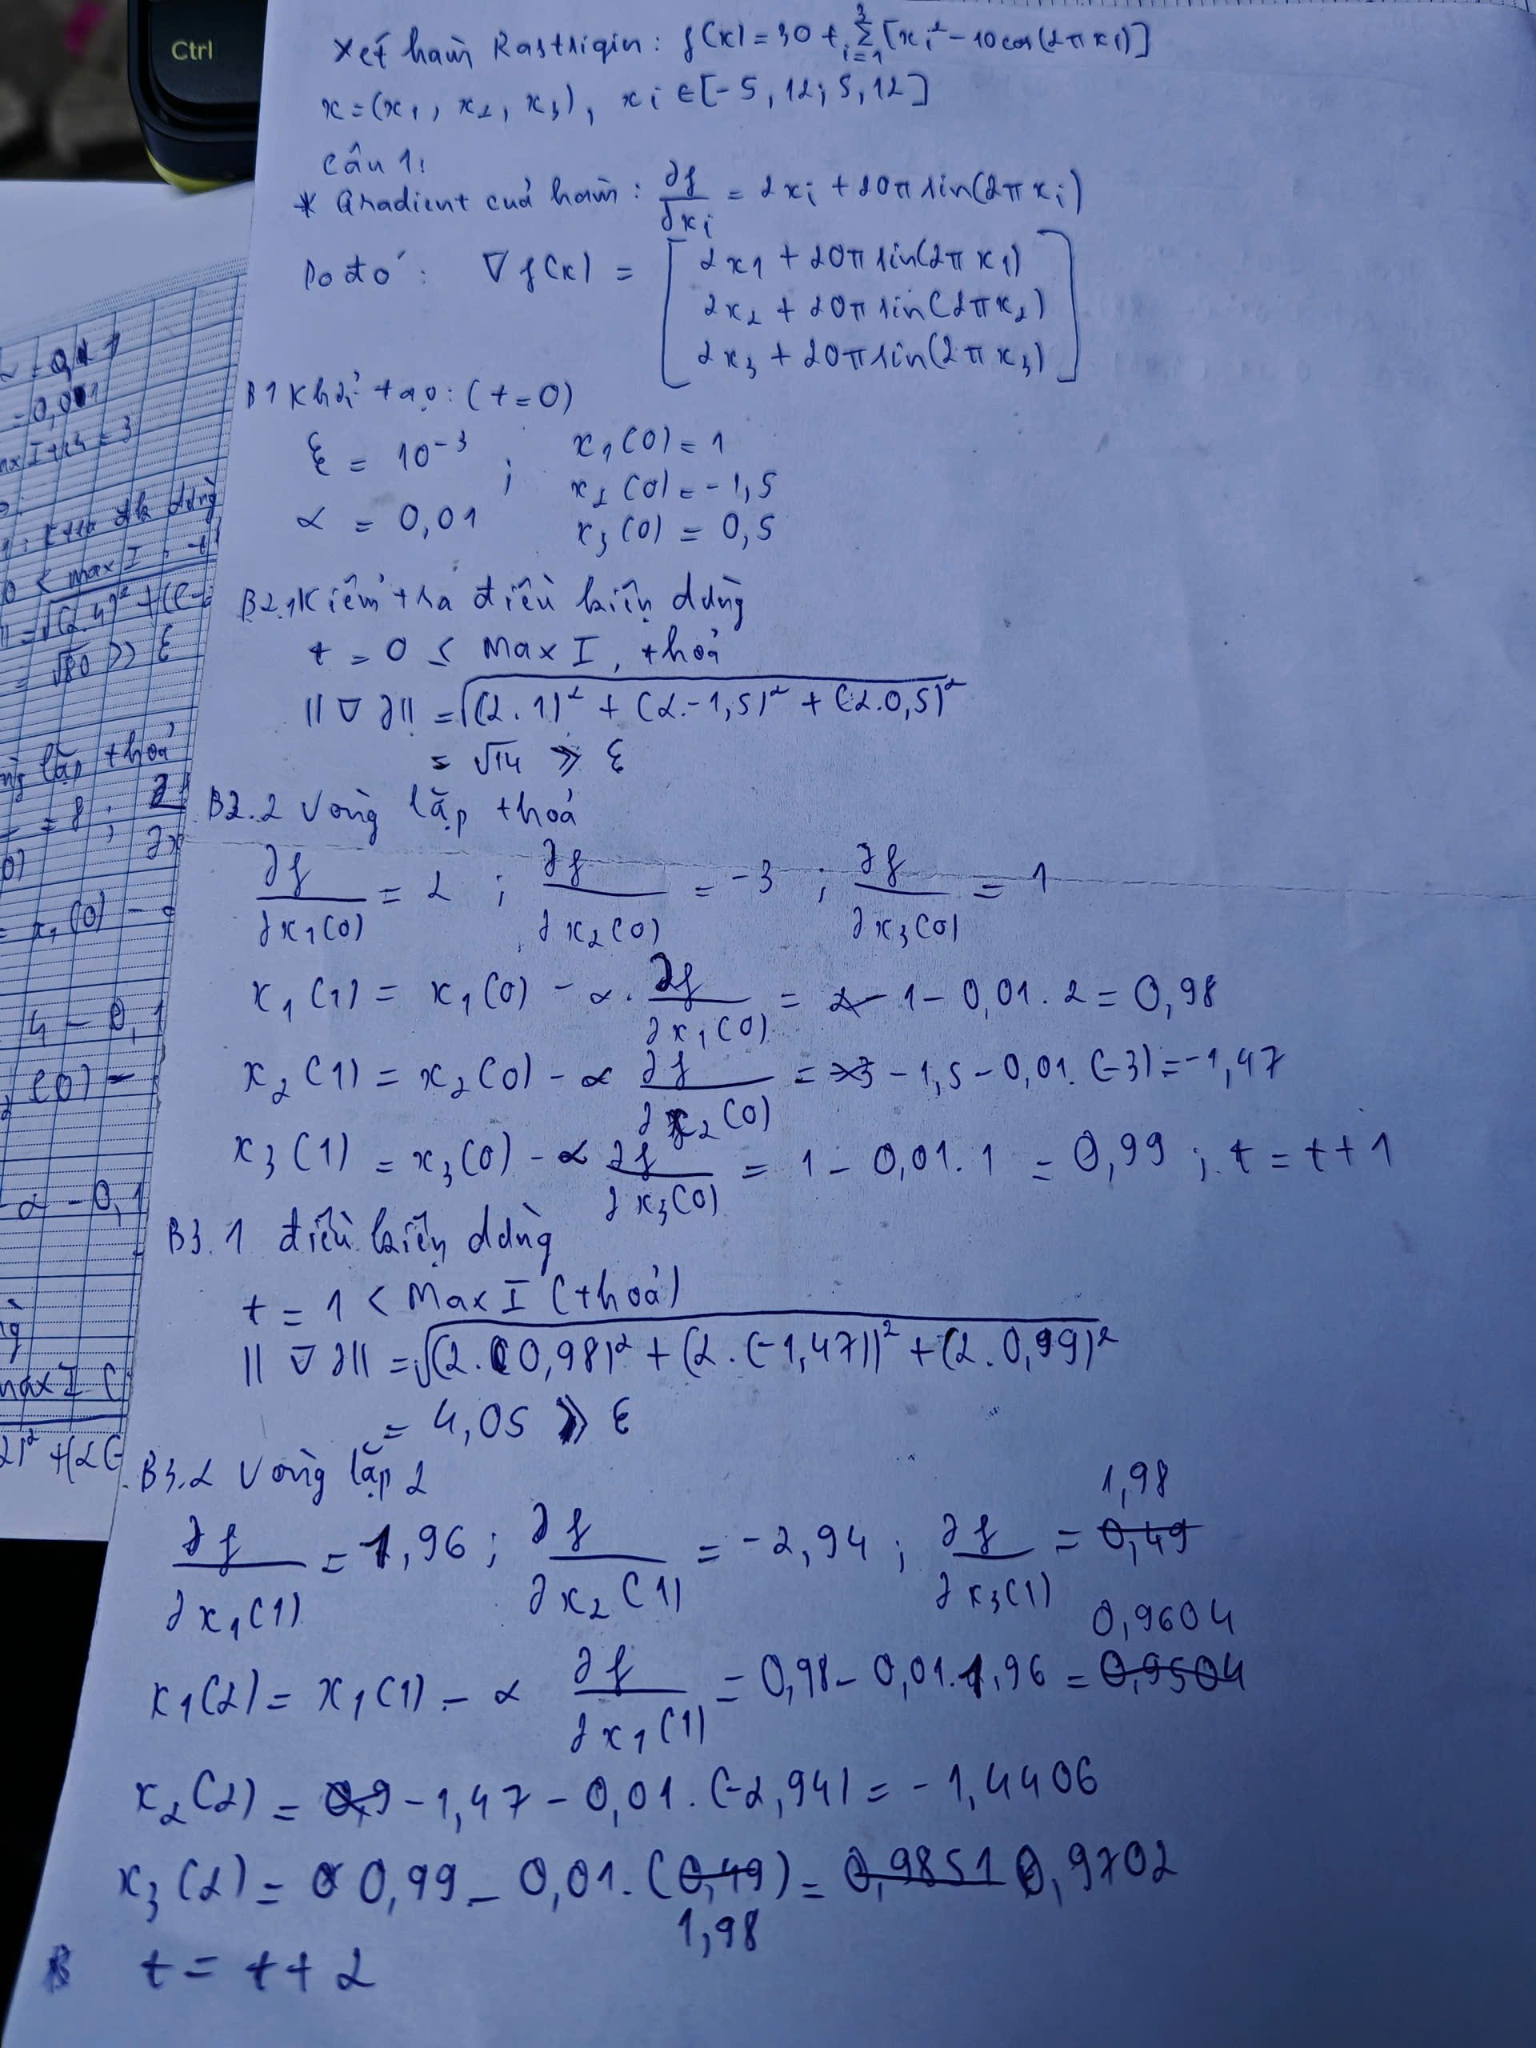 Ctrl
Xét hàm Rastrigin: f(x) = 30 + Σ_{i=1}^{3} [x_i² - 10cos(2πx_i)]
x = (x₁, x₂, x₃), x_i ∈ [-5,12; 5,12]
Câu 1:
* Gradient cuả hàm: ∂f/∂x_i = 2x_i + 20π sin(2πx_i)
Do đó: ∇f(x) = [2x₁ + 20π sin(2πx₁)
2x₂ + 20π sin(2πx₂)
2x₃ + 20π sin(2πx₃)]
B1 Khởi tạo: (t=0)
ξ = 10⁻³ ; x₁(0) = 1
x₂(0) = -1,5
α = 0,01 x₃(0) = 0,5
B2.1 Kiểm tra điều kiện dừng
t = 0 ≤ Max I, thoả
||∇∂|| = √((2.1)² + (2.-1,5)² + (2.0,5)²
= √14 ≫ ξ
B2.2 Vòng lặp thoả
∂f/∂x₁(0) = 2 ; ∂f/∂x₂(0) = -3 ; ∂f/∂x₃(0) = 1
x₁(1) = x₁(0) - α. ∂f/∂x₁(0) = 1 - 0,01.2 = 0,98
x₂(1) = x₂(0) - α ∂f/∂x₂(0) = -1,5 - 0,01.(-3) = -1,47
x₃(1) = x₃(0) - α ∂f/∂x₃(0) = 1 - 0,01.1 = 0,99 ; t = t+1
B3.1 điều kiện dừng
t = 1 < Max I (thoả)
||∇∂|| = √((2.(0,98)² + (2.(-1,47))² + (2.0,99)²
= 4,05 ≫ ξ
B3.2 Vòng lặp 2
∂f/∂x₁(1) = 1,96 ; ∂f/∂x₂(1) = -2,94 ; ∂f/∂x₃(1) = 0,49 1,98
x₁(2) = x₁(1) - α ∂f/∂x₁(1) = 0,98 - 0,01.1,96 = 0,9504 0,9604
x₂(2) = -1,47 - 0,01.(-2,94) = -1,4406
x₃(2) = 0,99 - 0,01.(0,49) = 0,9851 0,9702
1,98
t = t+2